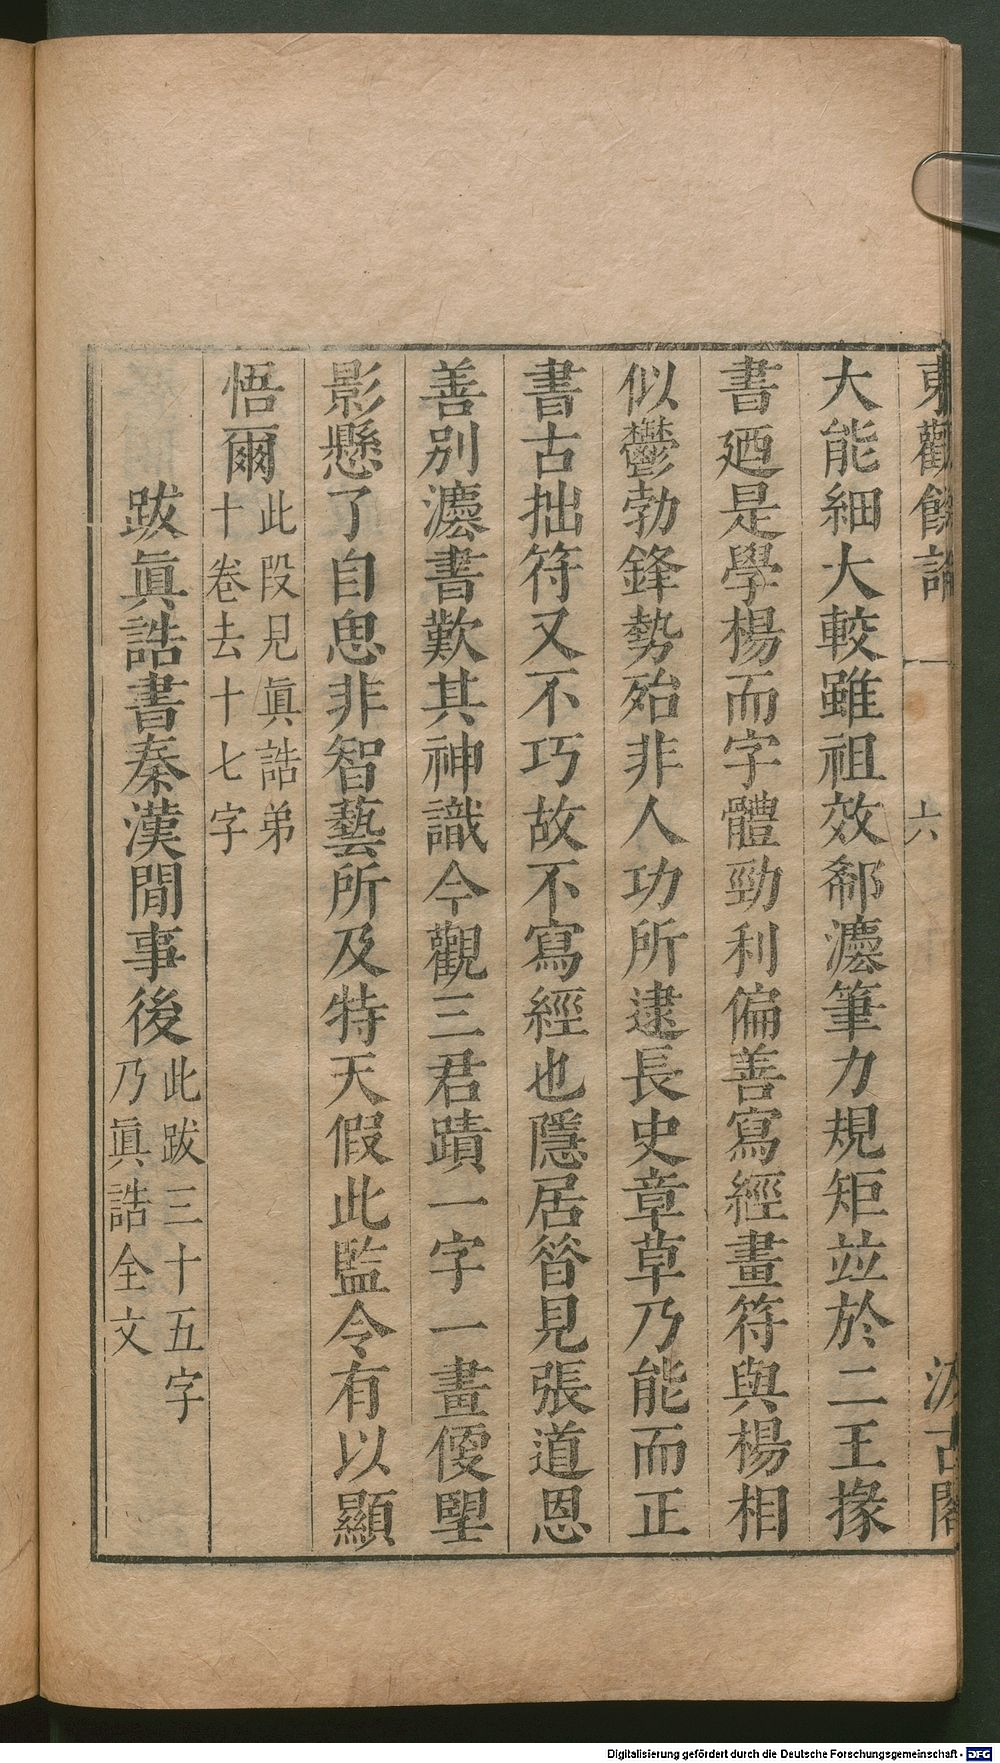 東觀餘論
六
汲古閣
大能細大較雖祖效郗灋筆力規矩竝於二王掾
書廼是學楊而字體勁利偏善寫經畫符與楊相
似鬱勃鋒勢殆非人功所逮長史章草乃能而正
書古拙符又不巧故不寫經也隱居昝見張道恩
善別灋書歎其神識今觀三君蹟一字一畫便望
影懸了自思非智藝所及特天假此監令有以顯
悟爾此段見眞誥弟
十卷去十七字
跋眞誥書秦漢間事後此跋三十五字
乃眞誥全文
Digitalisierung gefördert durch die Deutsche Forschungsgemeinschaft - DFG